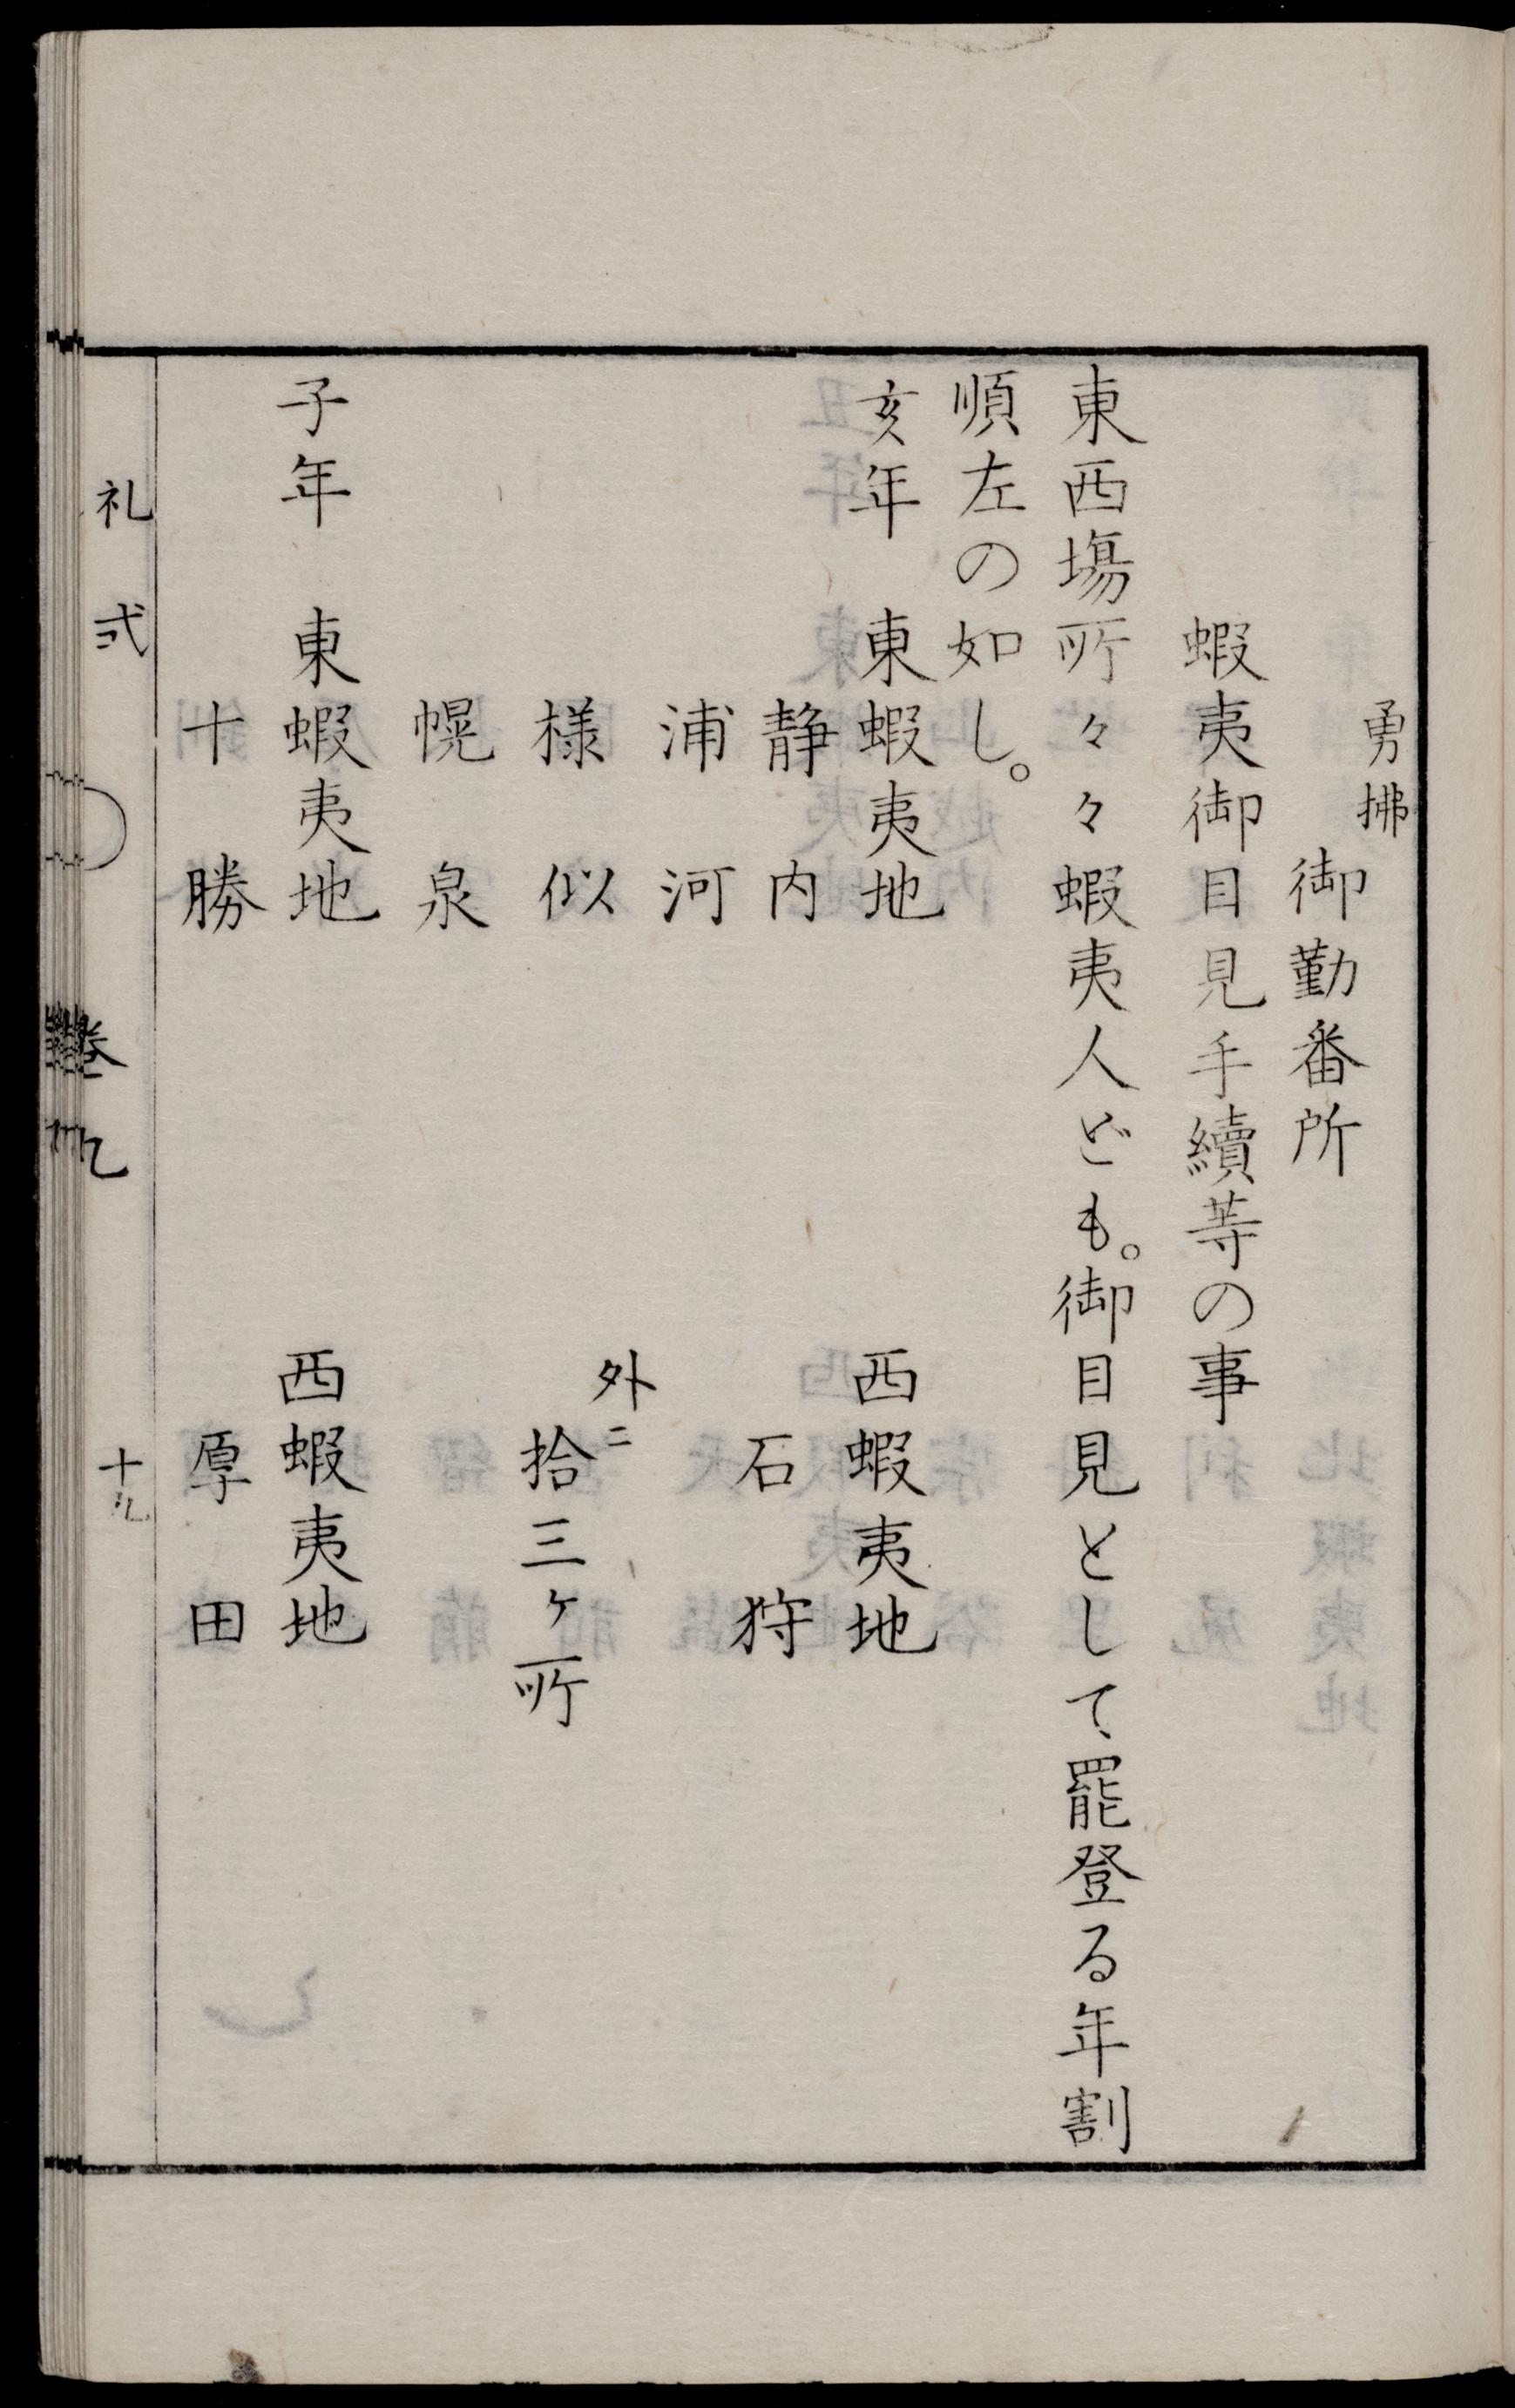 勇拂
御勤番所
蝦夷御目見手續等の事
東西塲所々々蝦夷人ども。御目見として、罷登る年割
順左の如し。
亥年　東蝦夷地　西蝦夷地
静内　石狩
浦河
外ニ
様似　拾三ヶ所
幌泉
子年　東蝦夷地　西蝦夷地
十勝　厚田
礼弐　卷九　十九